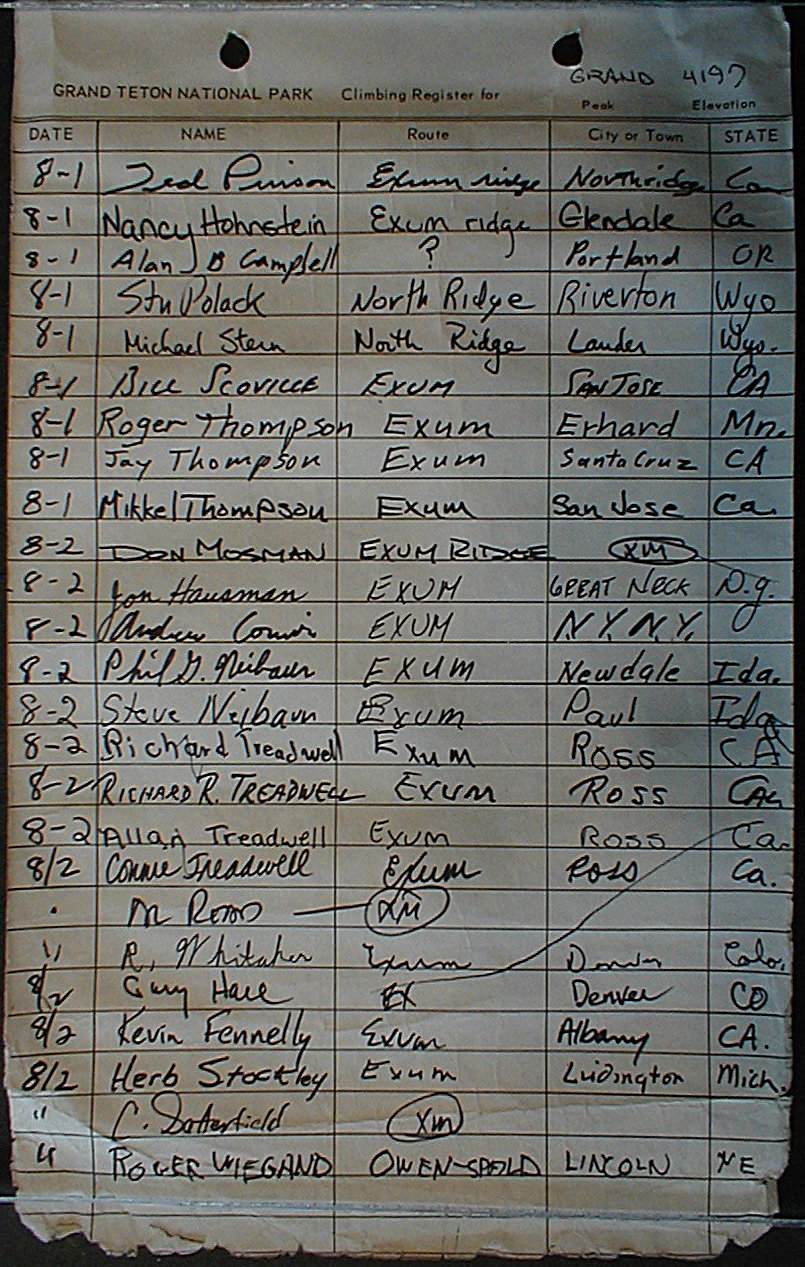 GRAND 4197
GRAND TETON NATIONAL PARK Climbing Register for Peak Elevation
DATE NAME Route City or Town STATE
8-1 Exum ridge Northridge Ca
8-1 Nancy Hohnstein Exum ridge Glendale Ca
8-1 Alan J B Campbell ? Portland OR
8-1 Stu Polack North Ridge Riverton Wyo
8-1 Michael Stern North Ridge Lander Wyo.
8-1 BILL SCOVILLE EXUM SAN JOSE CA
8-1 Roger Thompson Exum Erhard Mn.
8-1 Jay Thompson Exum Santa Cruz CA
8-1 Mikkel Thompson Exum San Jose Ca.
8-2 DON MOSMAN EXUM RIDGE XM
8-2 Jon Hausman EXUM GREAT NECK N.Y.
8-2 Andrew EXUM N.Y. N.Y.
8-2 Phil G. Neibaur EXUM Newdale Ida.
8-2 Steve Neibaur Exum Paul Ida
8-2 Richard Treadwell Exum Ross CA
8-2 RICHARD R. TREADWELL EXUM ROSS CAL
8-2 Allan Treadwell Exum Ross Ca.
8/2 Connie Treadwell Exum Ross Ca.
" M XM
" R. Whitaker Exum Denver Colo.
8/2 Gary Hall EX Denver CO
8/2 Kevin Fennelly Exum Albany CA.
8/2 Herb Stockley Exum Ludington Mich.
" C. Satterfield XM
" ROGER WIEGAND OWEN-SPALD LINCOLN NE